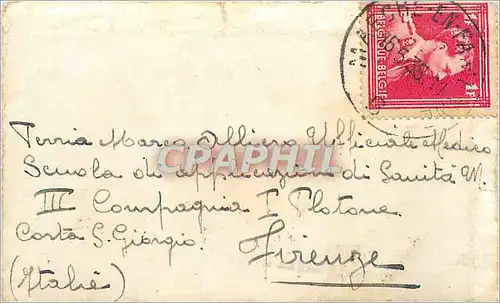 MARCHE-EN-FAMENNE
BELGIQUE-BELGIE
1F
Terria Marco Allievo Ufficiale Medico
Scuola di applicazione di Sanità M.
III Compagnia I Plotone
Costa S. Giorgio. Firenze
(Italie)
CPAPHIL